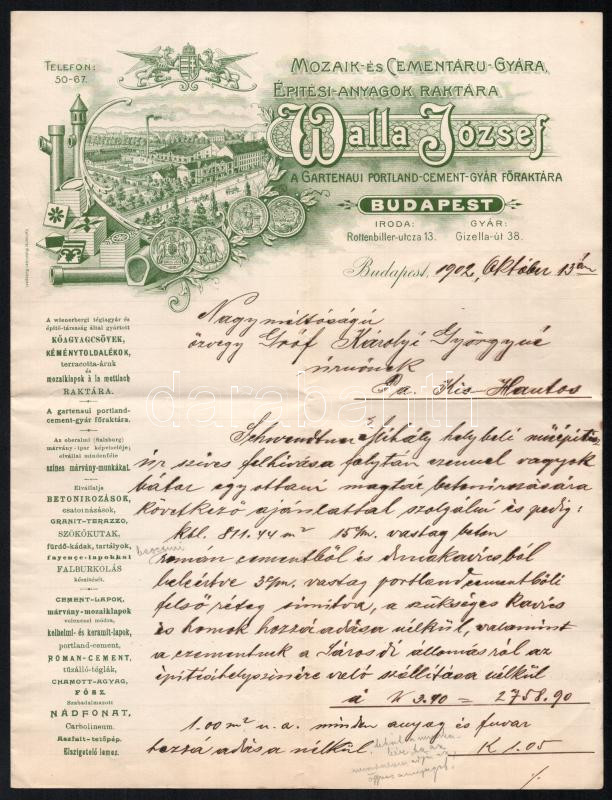 TELEFON:
50-67.
MOZAIK- ÉS CEMENTÁRU-GYÁRA,
ÉPITÉSI-ANYAGOK RAKTÁRA
Walla József
A GARTENAUI PORTLAND-CEMENT-GYÁR FŐRAKTÁRA
BUDAPEST
IRODA: GYÁR:
Rottenbiller-utcza 13. Gizella-út 38.
Budapest, 1902, Október 13án
Nagyméltóságú
özvegy Gróf Károlyi Györgyné
úrnőnek
Pa. Kis Hantos
A wienerbergi téglagyár és
építő-társaság által gyártott
KŐAGYAGCSÖVEK,
KÉMÉNYTOLDALÉKOK,
terracotta-áruk
és
mozaiklapok à la mettlach
RAKTÁRA.
A gartenaui portland-
cement-gyár főraktára.
Az oberalmi (Salzburg)
márvány-ipar képviselője;
elvállal mindenféle
színes márvány-munkákat.
Elvállalja
BETONIROZÁSOK,
csatornázások,
GRANIT-TERAZZO,
SZÖKŐKUTAK,
fürdő-kádak, tartályok,
fayence-lapokkal
FALBURKOLÁS
készítését.
CEMENT-LAPOK,
márvány-mozaiklapok
velenczei módra,
kelheimi- és keramit-lapok,
portland-cement,
ROMAN-CEMENT,
tűzálló-téglák,
CHAMOTT-AGYAG,
FÖSZ,
Szabadalmazott
NÁDFONAT,
Carbolineum.
Aszfalt-tetőpép.
Elszigetelő lemez.
Schwendtner Mihály helybeli műépítész
úr szíves felhívása folytán ezennel vagyok
bátor egy ottani magtár betonírozására
következő ajánlattal szolgálni és pedig:
kbl. 811.44 m² 15 c/m. vastag beton
román cementből és dunakavicsból
beleértve 3 c/m. vastag portlandcementből
felső réteg simítva, a szükséges kavics
és homok hozzáadása nélkül, valamint
a cementnek a Sárosdi állomásról az
építési helyszínére való szállítása nélkül
á K 3.40 = 2758.90
1.00 m² u.a. minden anyag és fuvar
hozzáadása nélkül K 1.05
darabanth